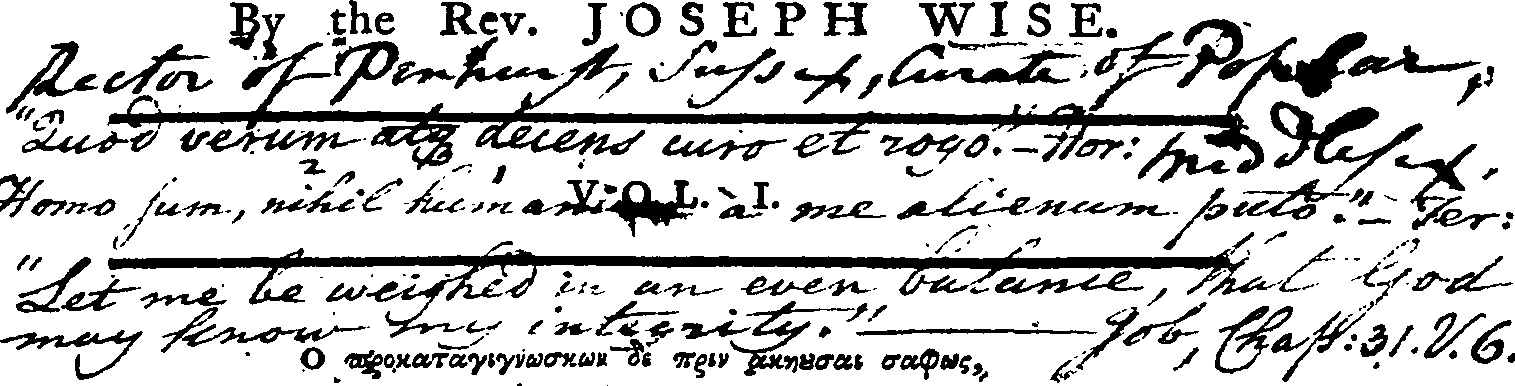 By the Rev. JOSEPH WISE.
Rector of Penhurst, Sussex, Curate of Poplar,
"Quod verum atq decens curo et rogo." – Hor: Middlesex.
VOL. I.
Homo sum, nihil humani a me alienum puto." – Ter:
"Let me be weighed in an even balance, that God
may know my integrity." — Job, Chap: 31. V. 6.
Ο προκαταγιγνωσκων δε πριν ακηυσαι σαφως,,